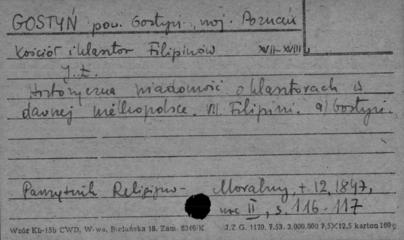 GOSTYŃ pow. Gostyń, woj. Poznań
Kościół i klasztor Filipinów XVII-XVIII
J. Ł.
Historyczna wiadomość o klasztorach w
dawnej Wielkopolsce. VII Filipini. a) Gostyń.
Pamiętnik Religijno- Moralny, t 12, 1847,
nr II, s. 116-117
Wzór Kb-15b CWD, W-wa, Bielańska 18. Zam. 5346/K J.Z.G. 1170. 7.53. 3.000.000 7,5X12,5 karton 160 g